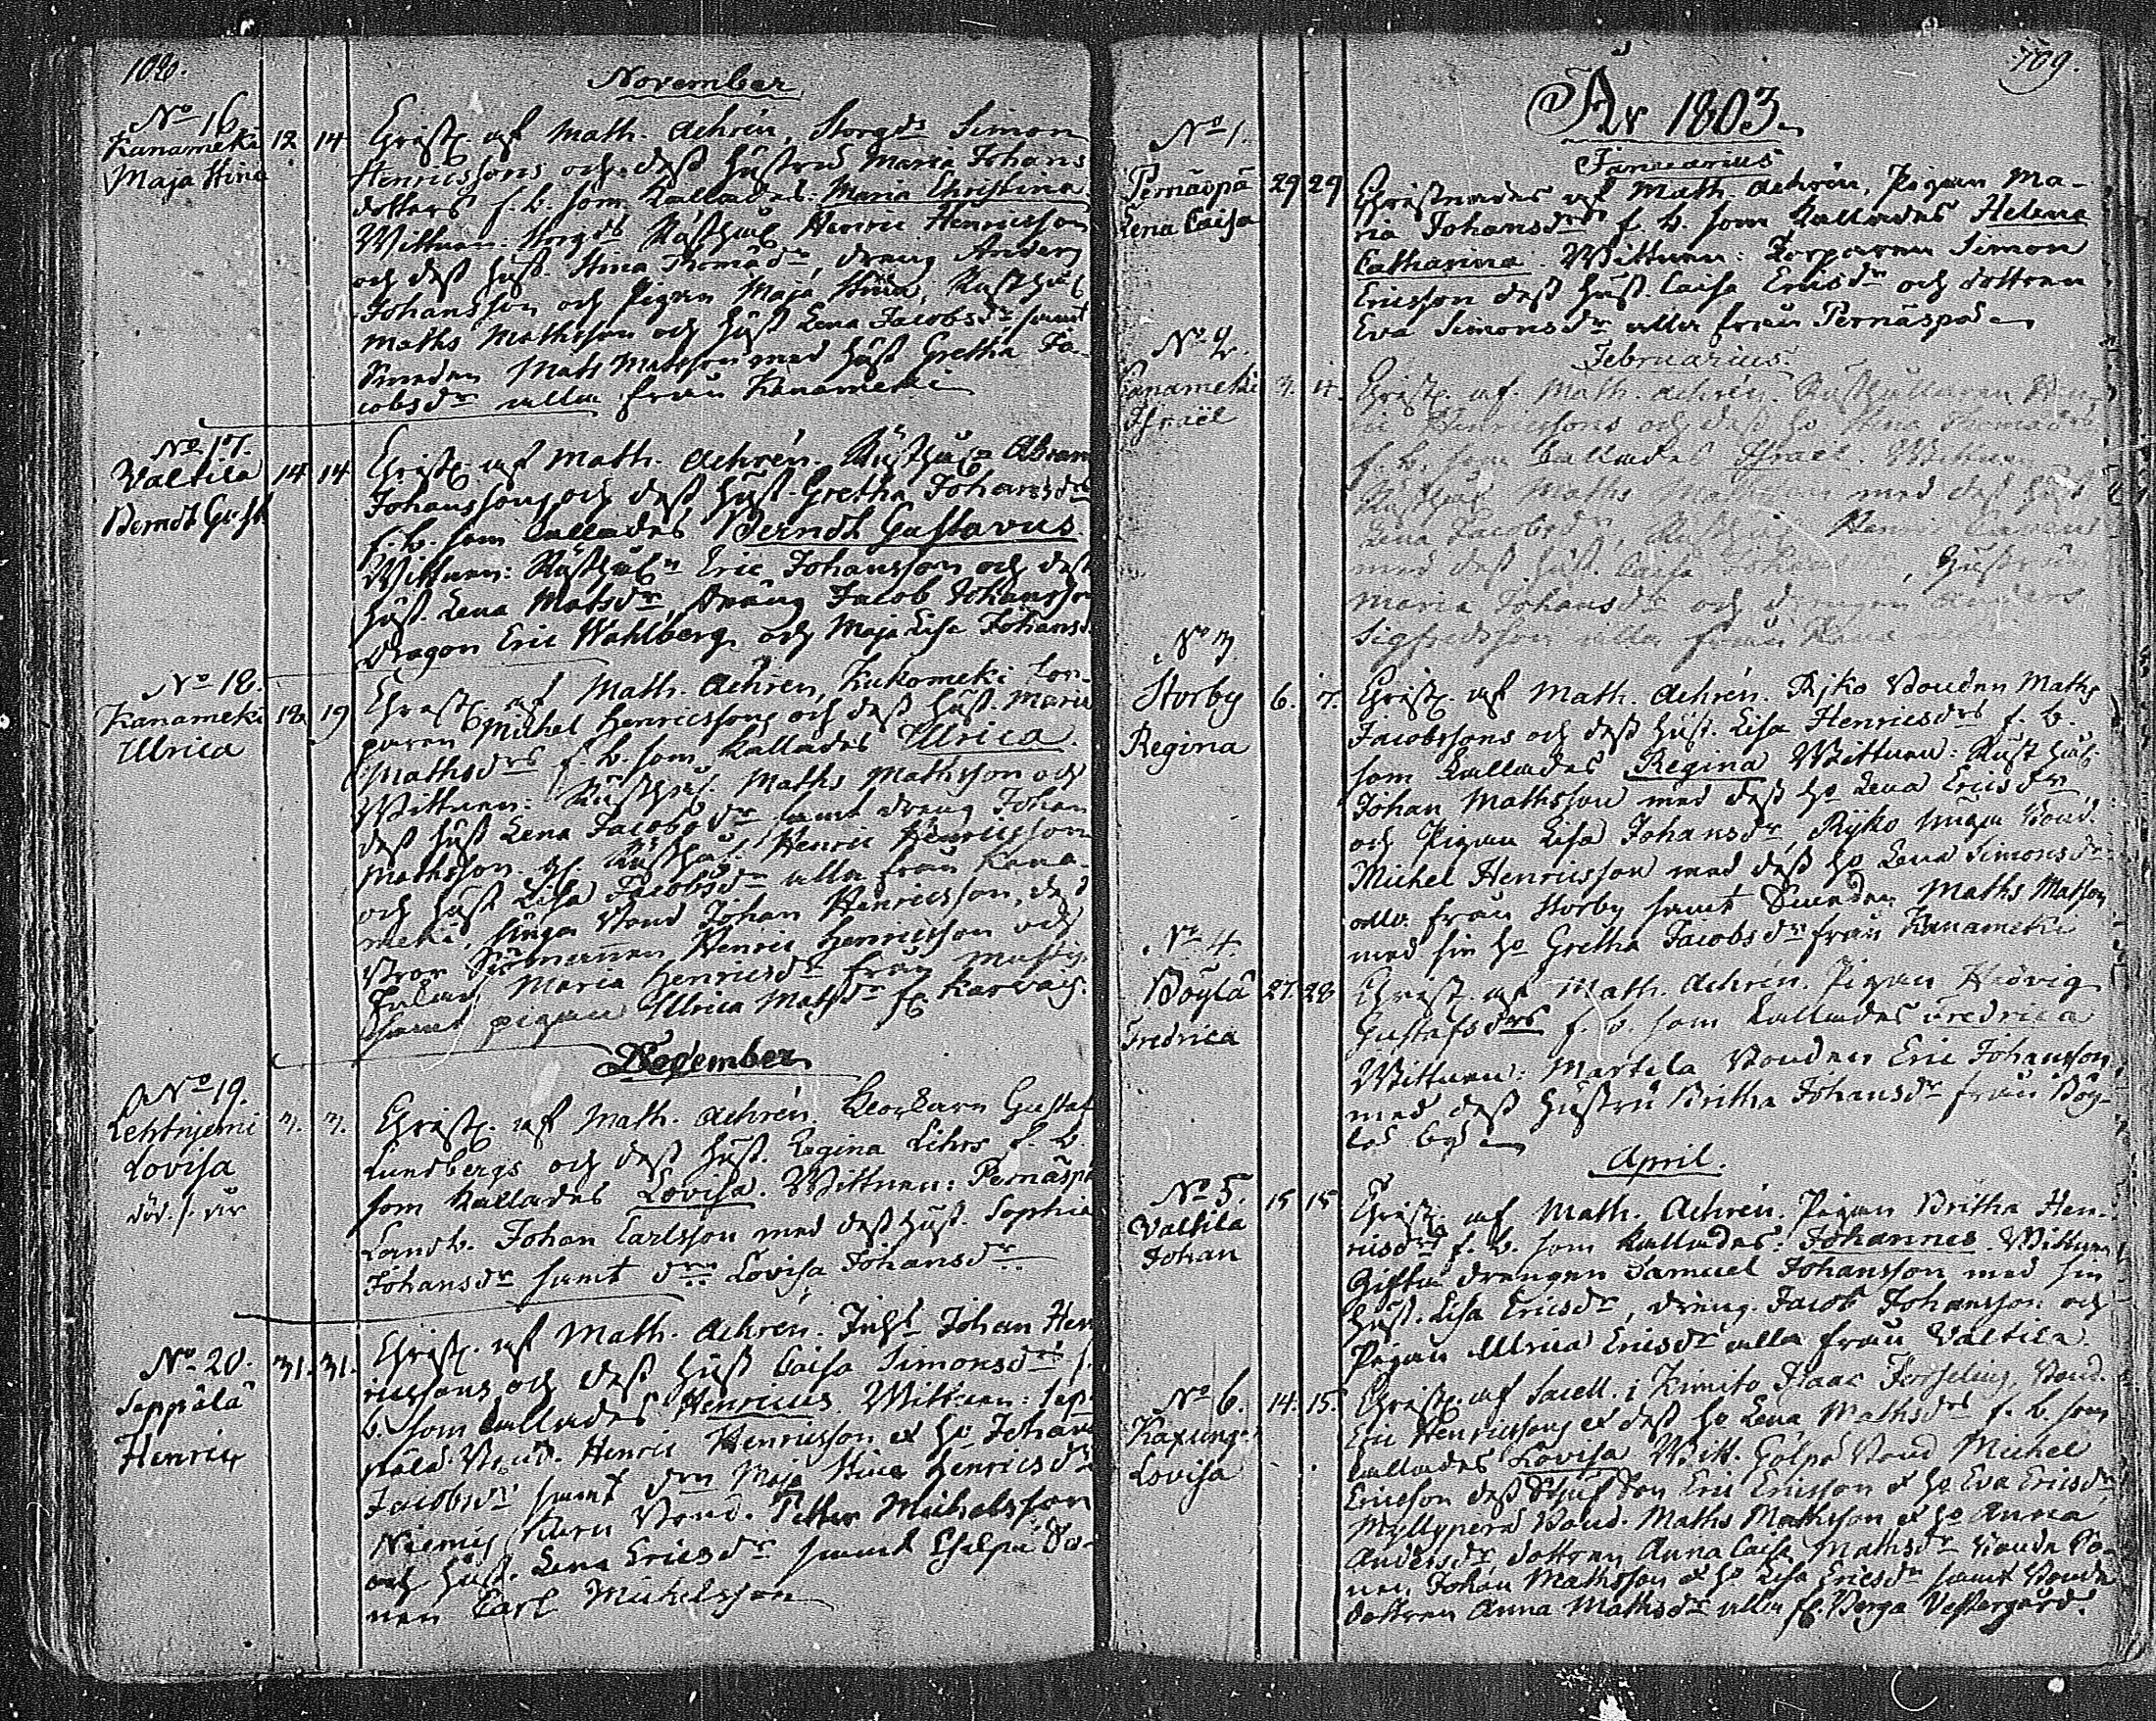 108.
November
No 16
Kanameki 12 14
Maja Stina
Christ. af Math. Achrén, Storgds Simon
Henricssons och dess hustru Maria Johans
dotters f. b. som kallades: Maria Christina
Wittnen: Storgds Rusthål Henric Henricsson
och dess hust. Stina Thomædr, dreng Anders
Johansson och Pigan Maja Stina, Rusthål
Maths Mathsson och hust Lena Jacobsdr samt
Smeden Mats Matsson med hust Gretha Ja-
cobsdr alla från Kanameki
No 17.
Valtila 14 14
Berndt Gust.
Christ. af Math. Achrén. Rusthåls Abram
Johanssons och dess hust. Gretha Johansdrs
f. b. som kallades Berndt Gustavus
Wittnen: Rusthåln Eric Johansson och dess
hust. Lena Matsdr, dräng Jacob Johansson
dragon Eric Wahlberg och Maja Lisa Johansd.
No 18.
Kanameki 18 19
Ulrica
Christ. af Math. Achrén, Kukomeki Tor-
paren Michel Henricssons och dess hust. Maria
Mathsdrs f. b. som kallades Ulrica.
Wittnen: Rusthål. Maths Mathsson och
dess hust Lena Jacobsdr samt dreng Johan
Mathsson. Rusthål. Henric Henricsson
och hust Lisa Jacobsdr alla från Kana-
meki, unga Bond Johan Henricsson, dess
bror Henric Henricsson och
Maria Henricsdr från
samt pigan Ulrica Matsdr fr Karvais.
December
No 19.
Lehtnjemi 3. 3.
Lovisa
död. s. år
Christ. af Math. Achrén. Klockarn Gustaf
Lundbergs och dess hust. Regina Lihrs f. b.
som kallades Lovisa. Wittnen: Pernäspä
Landb. Johan Carlsson med dess hust. Sophia
Johansdr samt drn Lovisa Johansdr
No 20. 31. 31.
Seppälä
Henric
Christ. af Math. Achrén. Inhs Johan Hen
ricssons och dess hust Caisa Simonsdrs f.
b. som kallades Henricus Wittnen: Sep-
pälä Bond. Henric Henricsson et ho Johan
Jacobsdr samt drn Maja Stina Henricsdr
Niemis Karn Bond. Petter Michelsson
och hust. Lena Ericsdr samt So-
nen Carl Michelsson
109.
År 1803
Januarius
No 1.
Pernäspä 29 29
Lena Caisa
Christnades af Math Achrén, Pigan Ma-
ria Johansdrs f. b. som kallades Helena
Catharina. Wittnen: Torparen Simon
Ericsson dess hust. Caisa Ericsdr och dottren
Eva Simonsdr alla från Pernäspä
Februarius
No 2.
Kanameki 3. 4.
Israël
Christ. af Math. Achrén. Rusthållaren Hen-
ric Henricssons och dess ho Stina Thomædrs
f. b. som kallades Israël. Wittnen
Rusthål Maths Mathsson med dess hust
Lena Jacobsdr, Rusthål Henric
med dess hust. Caisa Johansdr, Hustrun
Maria Johansdr och drengen Anders
Sigfredsson alla från Kanameki
No 3
Storby 6. 7.
Regina
Christ. af Math. Achrén. Rjko Bonden Maths
Jacobssons och dess hust. Lisa Henricsdrs f. b.
som kallades Regina Wittnen: Rusthål
Johan Mathsson med dess ho Lena Ericsdr
och Pigan Lisa Johansdr, Rijko unga Bond.
Michel Henricsson med dess ho Lena Simonsdr
alla från Storby samt Smeden Maths Matsson
med sin ho Gretha Jacobsdr från Kanameki
No 4.
Böylä 27. 28
Fredrica
Christ. af Math. Achrén. Pigan Hedvig
Gustafsdrs f. b. som kallades Fredrica
Wittnen: Martila Bonden Eric Johansson
med dess hustru Britha Johansdr från Böy-
lä by
April.
No 5. 15 15
Valtila
Johan
Christ. af Math. Achrén. Pigan Britha Hen-
ricsdrs f. b. som kallades: Johannes. Wittnen
Gifta drengen Samuel Johansson med sin
hust. Lisa Ericsdr, dreng. Jacob Johansson och
Pigan Ulrica Ericsdr alla från Valtila.
No 6. 14. 15.
Kaxung.
Lovisa
Christ. af Sacell. i Kimito Isaac Forselius, Bond.
Eric Henricssons et dess ho Lena Mathsdrs f. b. som
kallades Lovisa Witt. Gölpö Bond Michel
Ericsson dess Son Eric Ericsson et ho Eva Ericsdr
Myllyperä Bond. Maths Mathsson et ho Anna
Andersdr dottren Anna Caisa Mathsdr Bonde So-
nen Johan Mathsson et ho Lisa Ericsdr samt Bonde
dottren Anna Mathsdr alla fr. Berga Vestergård.